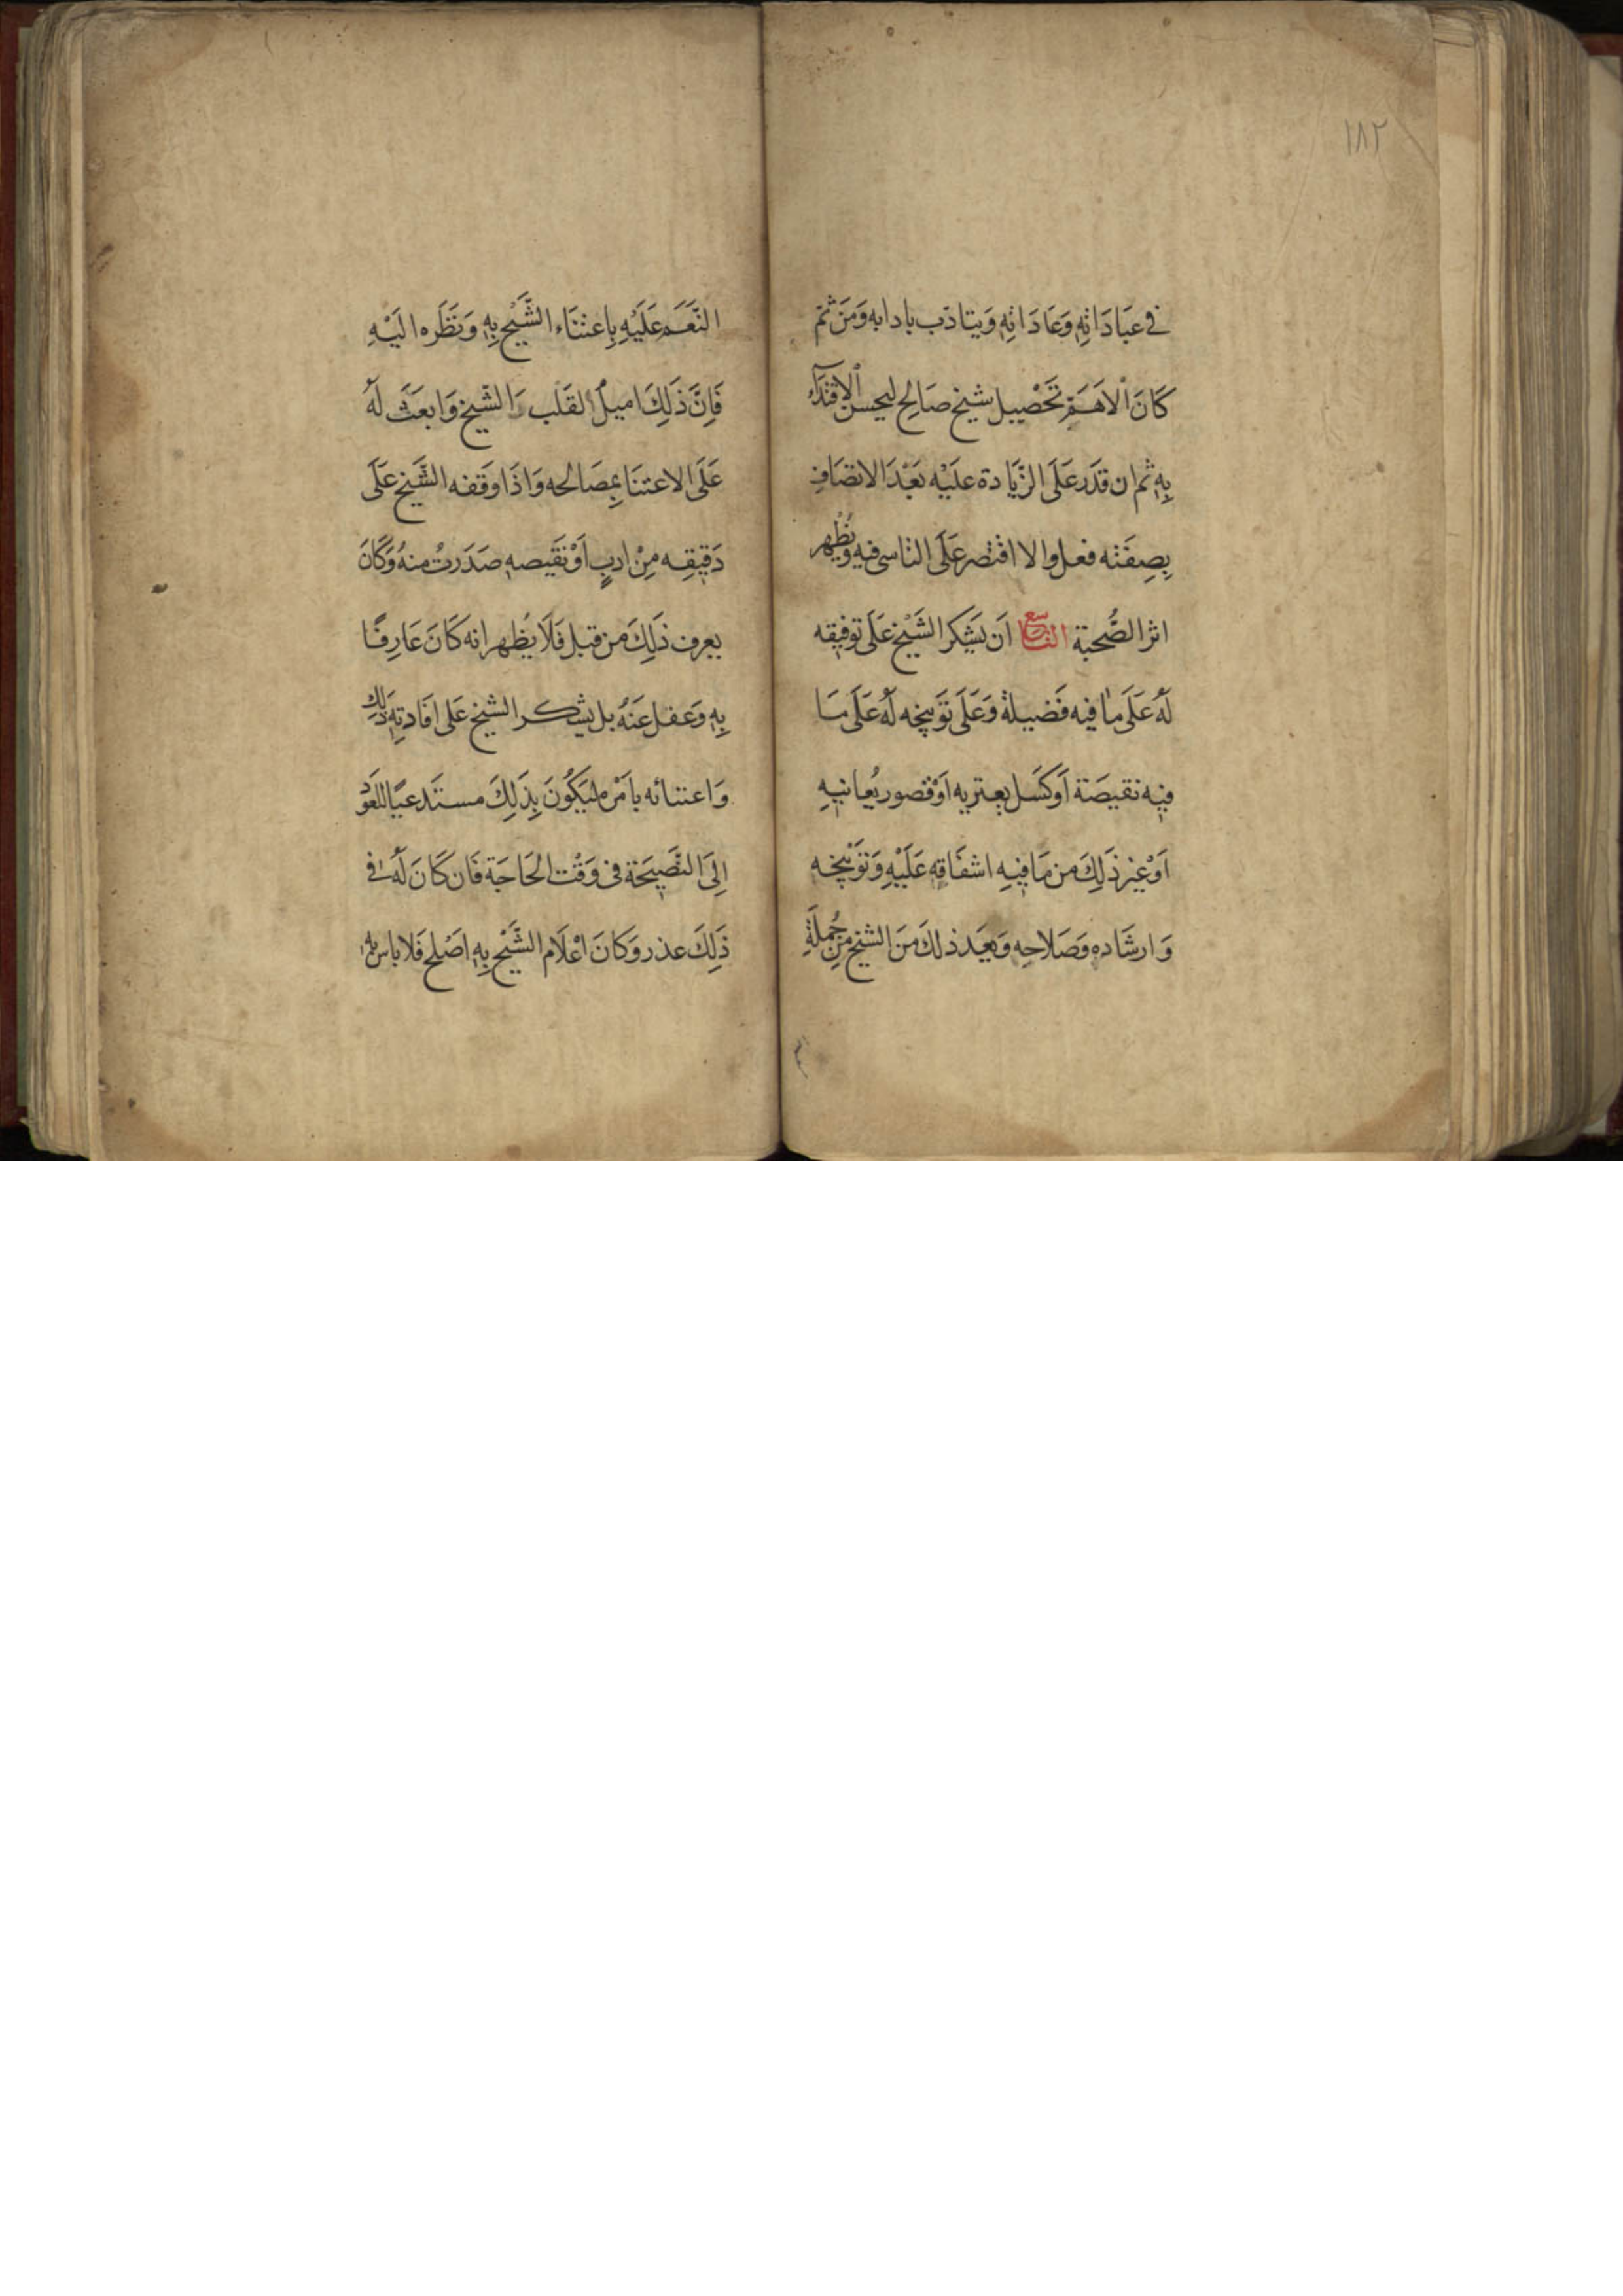 ١٨٢
في عبَادَاتِهِ وَعَادَاتِهِ وَيتادّب بادابه وَمَن ثم
كَانَ الْاَهَمّ تَحْصِيل شيخ صَالِح ليحسن الْاِقتدَآء
بِهِ ثم ان قدَر عَلَى الزّيَادة عليْه بَعْدَ الاتصَافِ
بِصِفَتِه فعل والا اقتصر عَلَى التاسى فيه وَيُظْهر
اثر الصُّحبَة التاسع اَن يَشكر الشَيْخ عَلَى توفيقه
لَهُ عَلَى مَا فيه فَضيلة وَعَلَى تَوبيخه لَهُ عَلَى مَا
فيْه نقيصَة اَوكَسَل يعتريه اَوْقصور يُعانيهِ
اَوْغير ذَلِكَ من مَا فيهِ اشفَاقه عَلَيْهِ وَتَوْبيخه
وَارشَاده وَصَلاحِه وَيعَد ذلكَ مَن الشيخ مِن جُملَةِ
النَّعَم عَلَيْهِ بِاعتنَاء الشَّيْخ بِهِ وَنَظَره اليْهِ
فَاِنَّ ذَلِكَ اميلُ القَلب الشّيخ وَابعَث لَهُ
عَلَى الاعتنَا بمصَالحه وَاذَا وقَفه الشَّيخ عَلَى
دَقيقِه مِنْ ادبٍ اَوْنَقيصه صَدَرتْ منهُ وَكَانَ
يعرف ذَلِكَ من قبل فَلَا يُظهر انه كَانَ عَارِفًا
بِهِ وَغفل عَنْهُ بل يشكر الشيخ عَلى افَادتِه ذَلِكَ
وَاعتنائه بامْره ليَكُونَ بِذَلِكَ مستَدعيًا للعَود
اِلىَ النصَيحَة فى وَقْت الحَاجَة فَان كَانَ لَهُ في
ذَلِكَ عذر وَكَانَ اعْلَام الشَّيْخ بِهِ اصْلح فَلا باس به